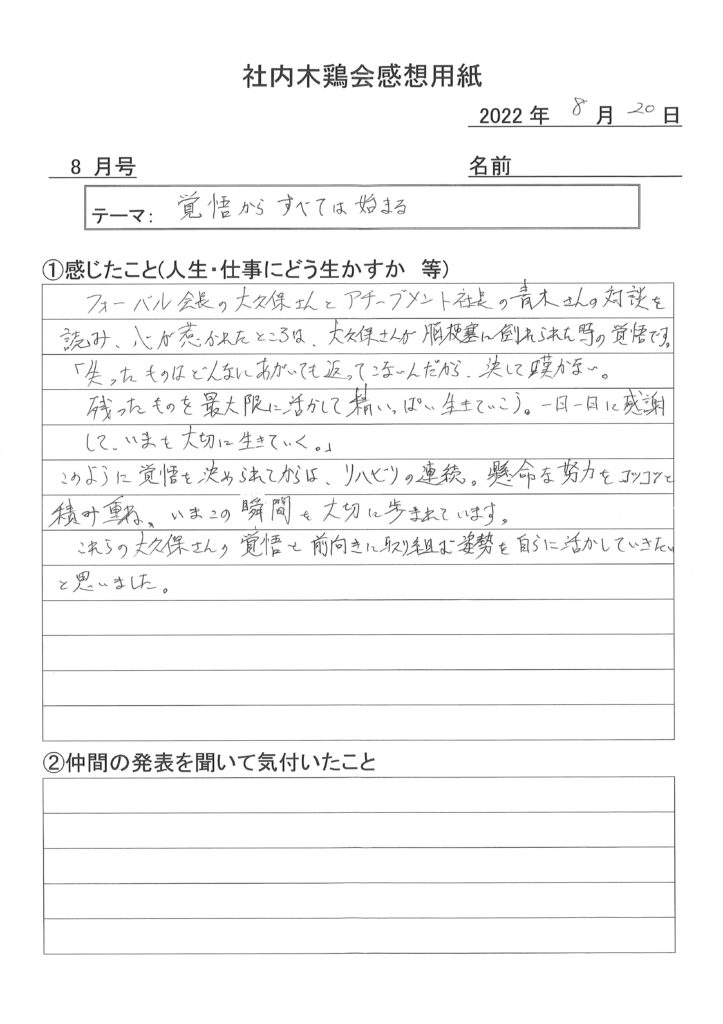 社内木鶏会感想用紙
2022年 8月 20日
8 月号
名前
テーマ： 覚悟から すべては 始まる
①感じたこと(人生・仕事にどう生かすか 等)
フォーバル会長の大久保さんとアチーブメント社長の青木さんの対談を
読み、心が惹かれたところは、大久保さんが脳梗塞に倒れられた時の覚悟です。
「失ったものはどんなにあがいても返ってこないんだから、決して嘆かない。
残ったものを最大限に活かして精いっぱい生きていこう。一日一日に感謝
して、いまを大切に生きていく。」
このように覚悟を決められてからは、リハビリの連続。懸命な努力をコツコツと
積み重ね、いまこの瞬間を大切に歩まれています。
これらの大久保さんの覚悟と前向きに取り組む姿勢を自らに活かしていきたい
と思いました。
②仲間の発表を聞いて気付いたこと